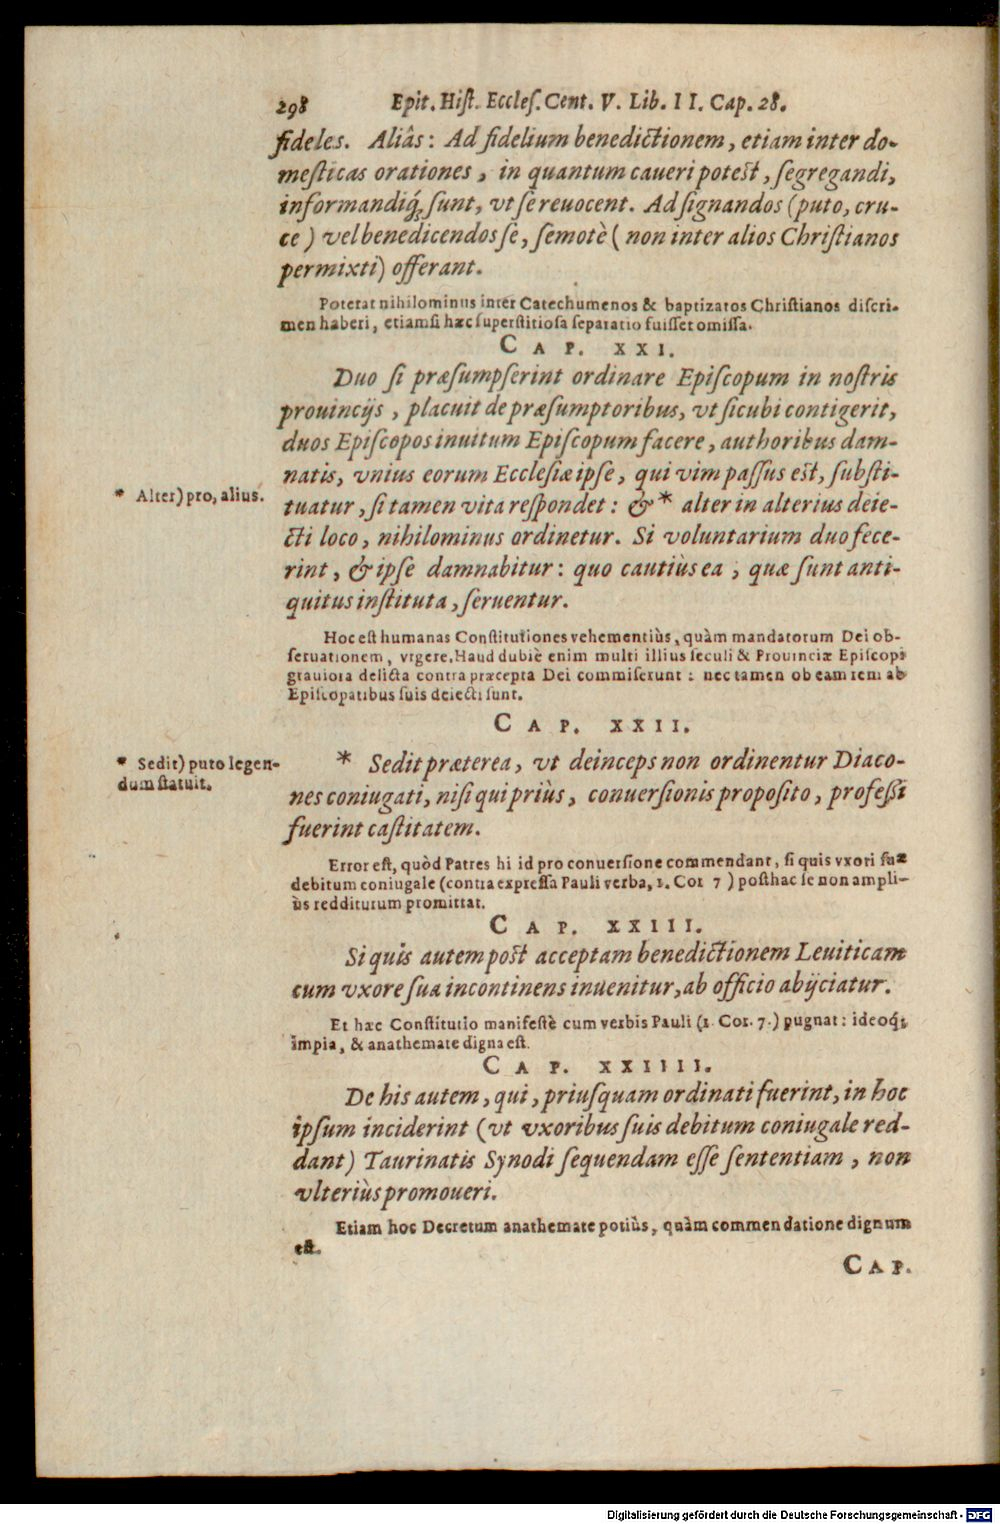 298 Epit. Hiſt. Eccleſ. Cent. V. Lib. II. Cap. 28.
fideles. Aliâs: Ad fidelium benedictionem, etiam inter do-
meſticas orationes, in quantum caueri poteſt, ſegregandi,
informandiq́; ſunt, vt ſe reuocent. Ad ſignandos (puto, cru-
ce) vel benedicendos ſe, ſemotè (non inter alios Chriſtianos
permixti) offerant.
Poterat nihilominus inter Catechumenos & baptizatos Chriſtianos diſcri-
men haberi, etiamſi hæc ſuperſtitioſa ſeparatio fuiſſet omiſſa.
CAP. XXI.
Duo ſi præſumpſerint ordinare Epiſcopum in noſtris
prouincijs, placuit de præſumptoribus, vt ſicubi contigerit,
duos Epiſcopos inuitum Epiſcopum facere, authoribus dam-
natis, vnius eorum Eccleſiæ ipſe, qui vim paſſus eſt, ſubſti-
* Alter) pro, alius.
tuatur, ſi tamen vita reſpondet: & * alter in alterius deie-
cti loco, nihilominus ordinetur. Si voluntarium duo fece-
rint, & ipſe damnabitur: quo cautiùs ea, quæ ſunt anti-
quitus inſtituta, ſeruentur.
Hoc eſt humanas Conſtitutiones vehementiùs, quàm mandatorum Dei ob-
ſeruationem, vrgere. Haud dubiè enim multi illius ſeculi & Prouinciæ Epiſcopi
grauiora delicta contra præcepta Dei commiſerunt: nec tamen ob eam rem ab
Epiſcopatibus ſuis deiecti ſunt.
CAP. XXII.
* Sedit) puto legen-
dum ſtatuit.
* Sedit præterea, vt deinceps non ordinentur Diaco-
nes coniugati, niſi qui priùs, conuerſionis propoſito, profeſſi
fuerint caſtitatem.
Error eſt, quòd Patres hi id pro conuerſione commendant, ſi quis vxori ſuæ
debitum coniugale (contra expreſſa Pauli verba, 1. Cor 7) poſthac ſe non ampli-
ùs redditurum promittat.
CAP. XXIII.
Si quis autem poſt acceptam benedictionem Leuiticam
cum vxore ſua incontinens inuenitur, ab officio abijciatur.
Et hæc Conſtitutio manifeſtè cum verbis Pauli (1. Cor. 7.) pugnat: ideoq́;
impia, & anathemate digna eſt.
CAP. XXIIII.
De his autem, qui, priuſquam ordinati fuerint, in hoc
ipſum inciderint (vt vxoribus ſuis debitum coniugale red-
dant) Taurinatis Synodi ſequendam eſſe ſententiam, non
vlteriùs promoueri.
Etiam hoc Decretum anathemate potiùs, quàm commendatione dignum
eſt.
CAP.
Digitalisierung gefördert durch die Deutsche Forschungsgemeinschaft - DFG